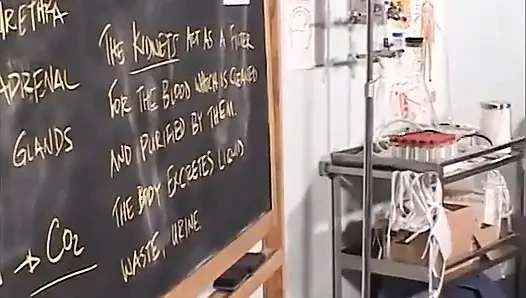 URETHRA
ADRENAL
GLANDS
→ CO2
THE KIDNEYS ACT AS A FILTER
FOR THE BLOOD WHICH IS CLEANED
AND PURIFIED BY THEM.
THE BODY EXCRETES LIQUID
WASTE, URINE